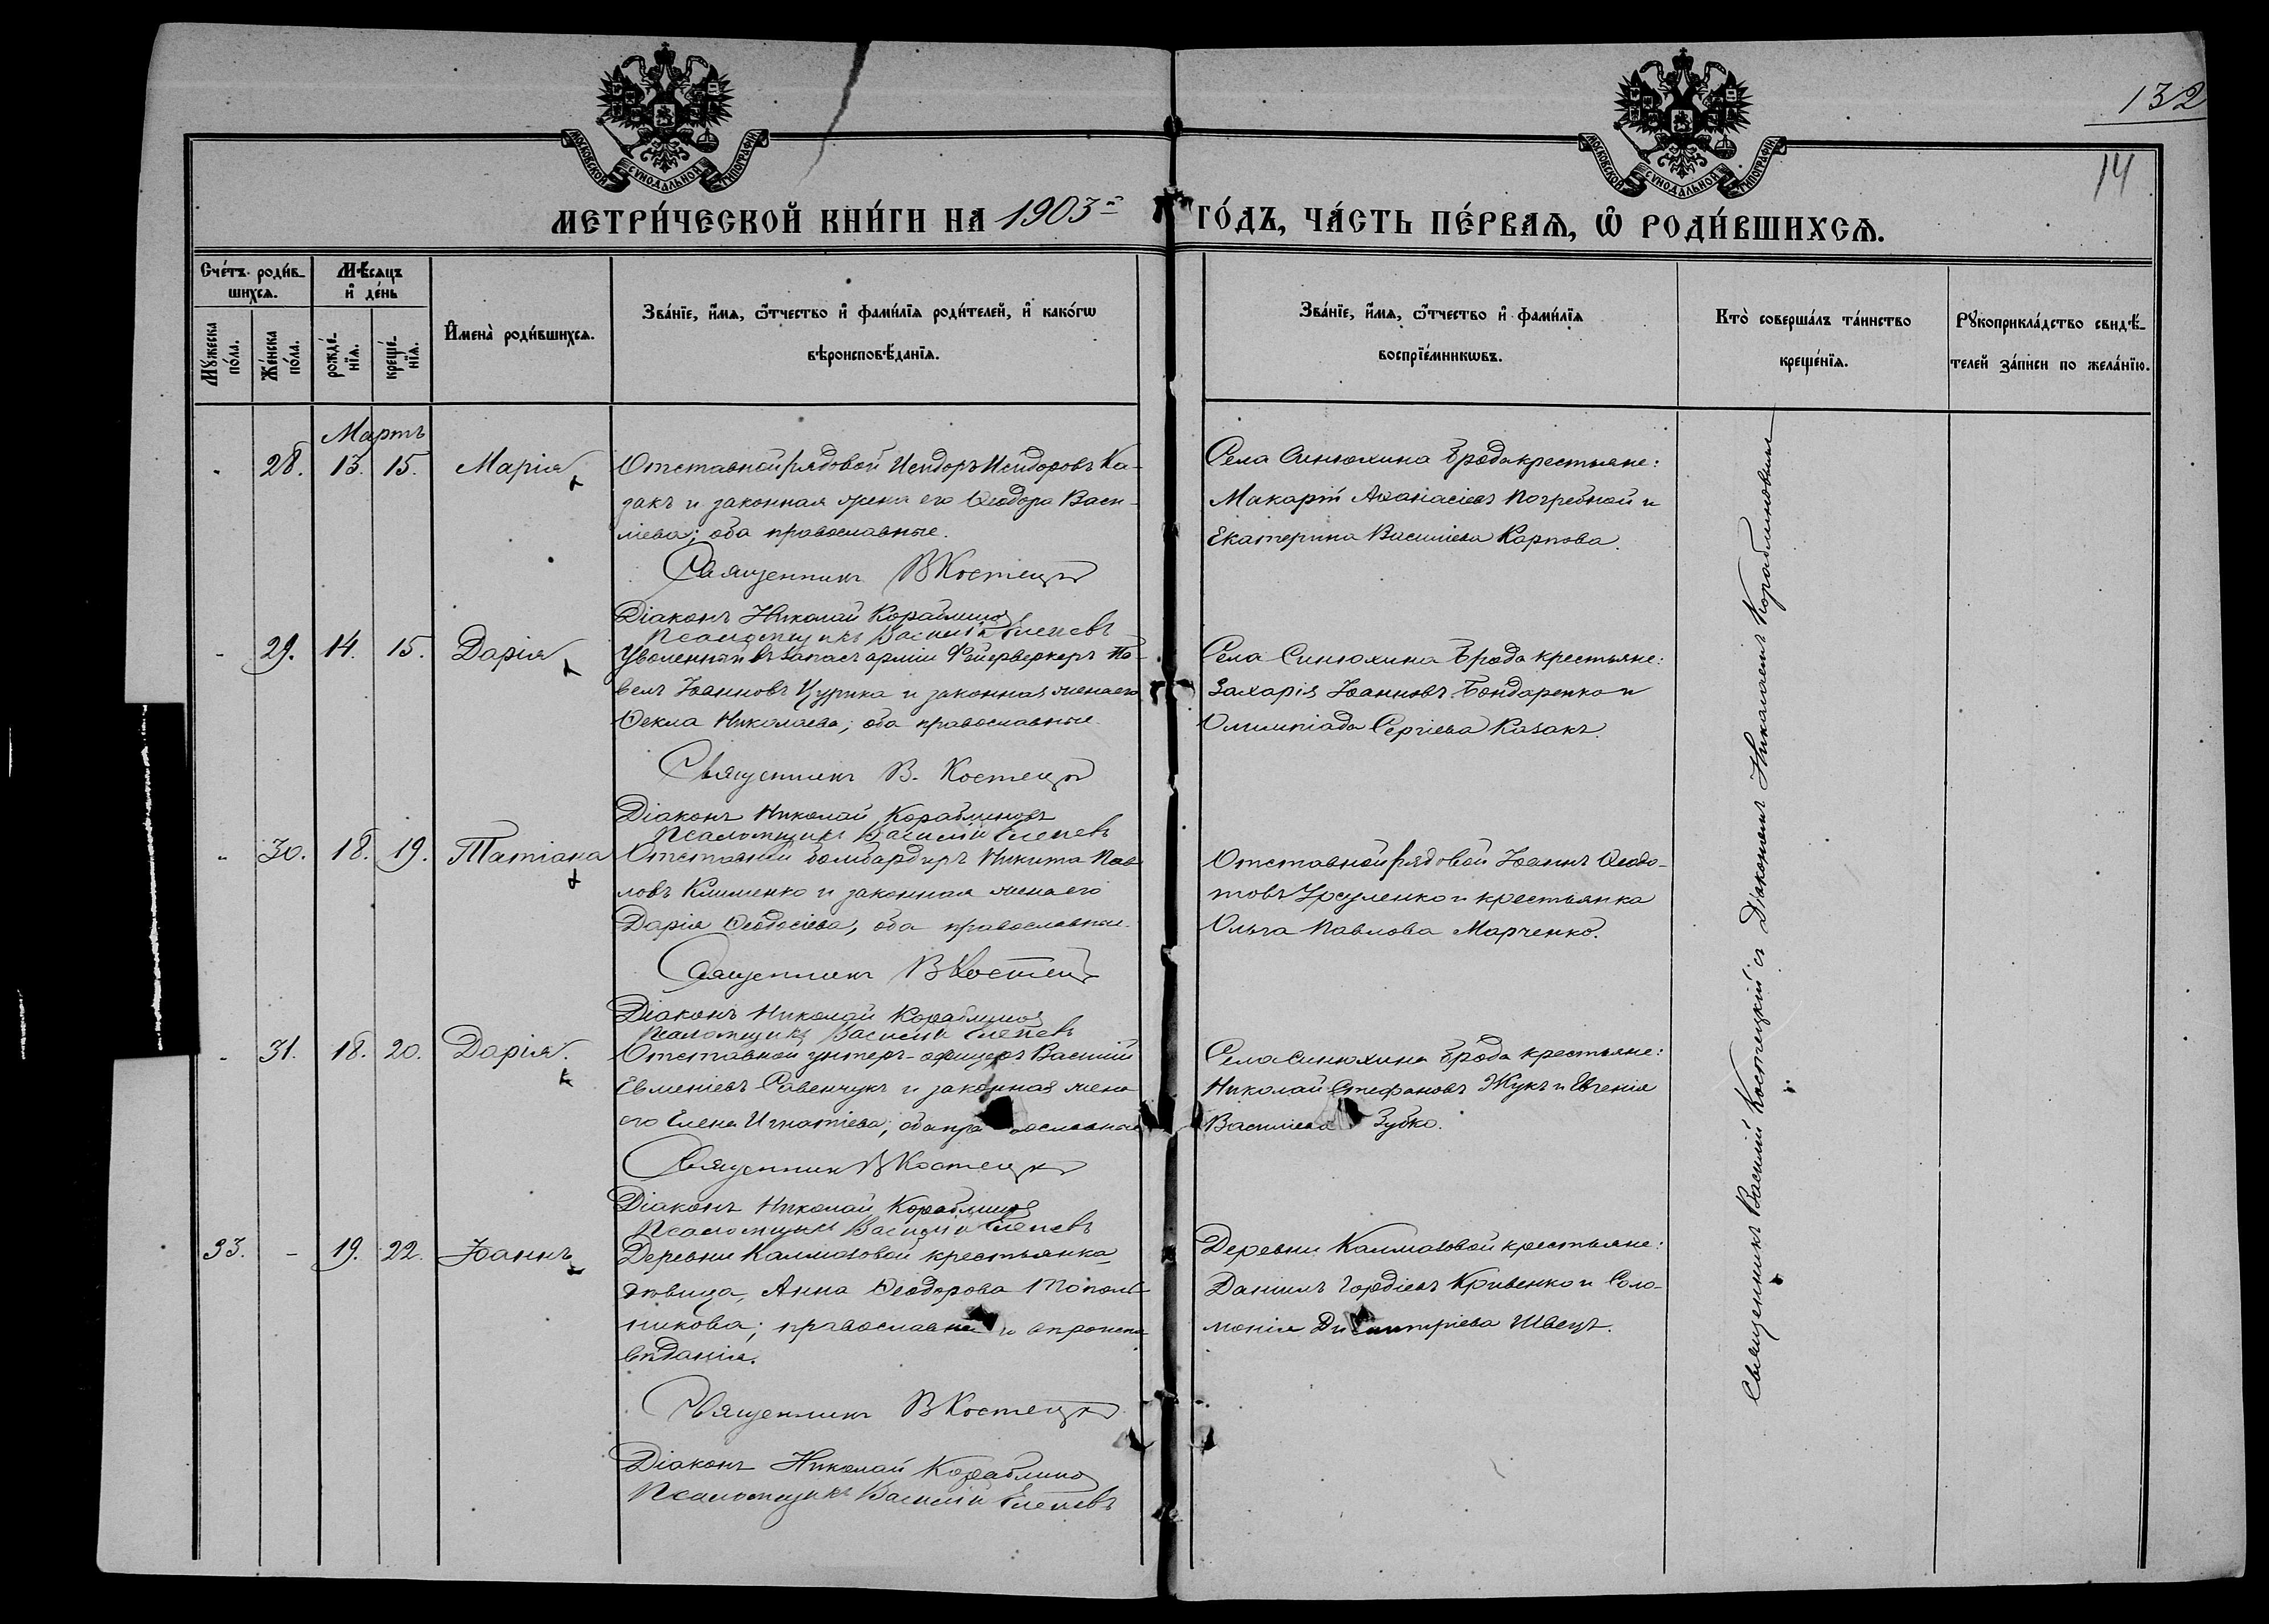 132
14
МОСКОВСКОЙ СѴНОДАЛЬНОЙ ТИПОГРАФІИ
МОСКОВСКОЙ СѴНОДАЛЬНОЙ ТИПОГРАФІИ
МЕТРИ́ЧЕСКОЙ КНИ́ГИ НА 1903 й ГО́ДЪ, ЧА́СТЬ ПЕ́РВАѦ, Ѡ҆ РОДИ́ВШИХСѦ.
Сче́тъ роди́в-
шихсѧ.
Мѣ́сѧцъ
и҆ де́нь
Мꙋ́жеска по́ла.
Же́нска по́ла.
рожде́-
нїѧ.
креще́-
нїѧ.
И҆мена̀ роди́вшихсѧ.
Зва́нїе, и҆́мѧ, ѻ҆́тчество и҆ фами́лїѧ роди́телей, и҆ како́гѡ
вѣроисповѣ́данїѧ.
Зва́нїе, и҆́мѧ, ѻ҆́тчество и҆ фами́лїѧ
воспрїе́мникѡвъ.
Кто̀ соверша́лъ та́инство
креще́нїѧ.
Рꙋкоприкла́дство свидѣ́-
телей за́писи по жела́нїю.
Мартъ
- 28. 13. 15. Марія
Отставной рядовой Исидоръ Исидоровъ Ка-
закъ и законная жена его Ѳеодора Васи-
ліева; оба православные.
Священникъ В Костецкі
Діаконъ Николай Кораблинов
Псаломщикъ Василій
Села Синюхина Брода крестьяне:
Макарій Аѳанасіевъ Погребной и
Екатерина Василіева Карпова.
- 29. 14. 15. Дарія
Уволенный въ запасъ арміи Фейерверкеръ Па-
велъ Іоанновъ Цурика и законная жена его
Ѳекла Николаева; оба православные.
Священникъ В. Костецкі
Діаконъ Николай Кораблиновъ
Псаломщикъ Василій
Села Синюхина Брода крестьяне:
Захарія Іоанновъ Бондаренко и
Олимпіада Сергіева Казакъ.
- 30. 18. 19. Татіана
Отставной бомбардиръ Никита Пав-
ловъ Клименко и законная жена его
Дарія Ѳеодосіева, оба православные.
Священникъ В Костецкі
Діаконъ Николай Кораблинов
Псаломщикъ Василій
Отставной рядовой Іоаннъ Ѳеодо-
товъ Урсуленко и крестьянка
Ольга Павлова Марченко.
- 31. 18. 20. Дарія.
Отставной унтеръ-офицеръ Василій
Евменіевъ Савенчукъ и законная жена
его Елена Игнатіева; оба православные
Священник В Костецкі
Діаконъ Николай Кораблинов
Псаломщикъ Василій
Села Синюхина Брода крестьяне:
Николай Стефановъ Жукъ и Евгенія
Василіева Зубко.
33. - 19. 22. Іоаннъ
Деревни Калмазовой крестьянка
дѣвица, Анна Ѳеодорова
никова; православнаго вѣроиспо-
вѣданія.
Священникъ В Костецкі
Діаконъ Николай Кораблинов
Псаломщикъ Василій
Деревни Калмазовой крестьяне:
Даніилъ Гордіевъ Кривенко и Соло-
монія Димитріева Швецъ.
Священникъ Василій Костецкій съ Діакономъ Николаемъ Кораблиновымъ